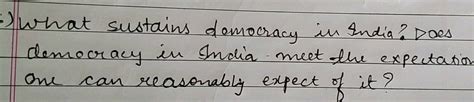 :) What sustains democracy in India? Does
democracy in India meet the expectation
one can reasonably expect of it?